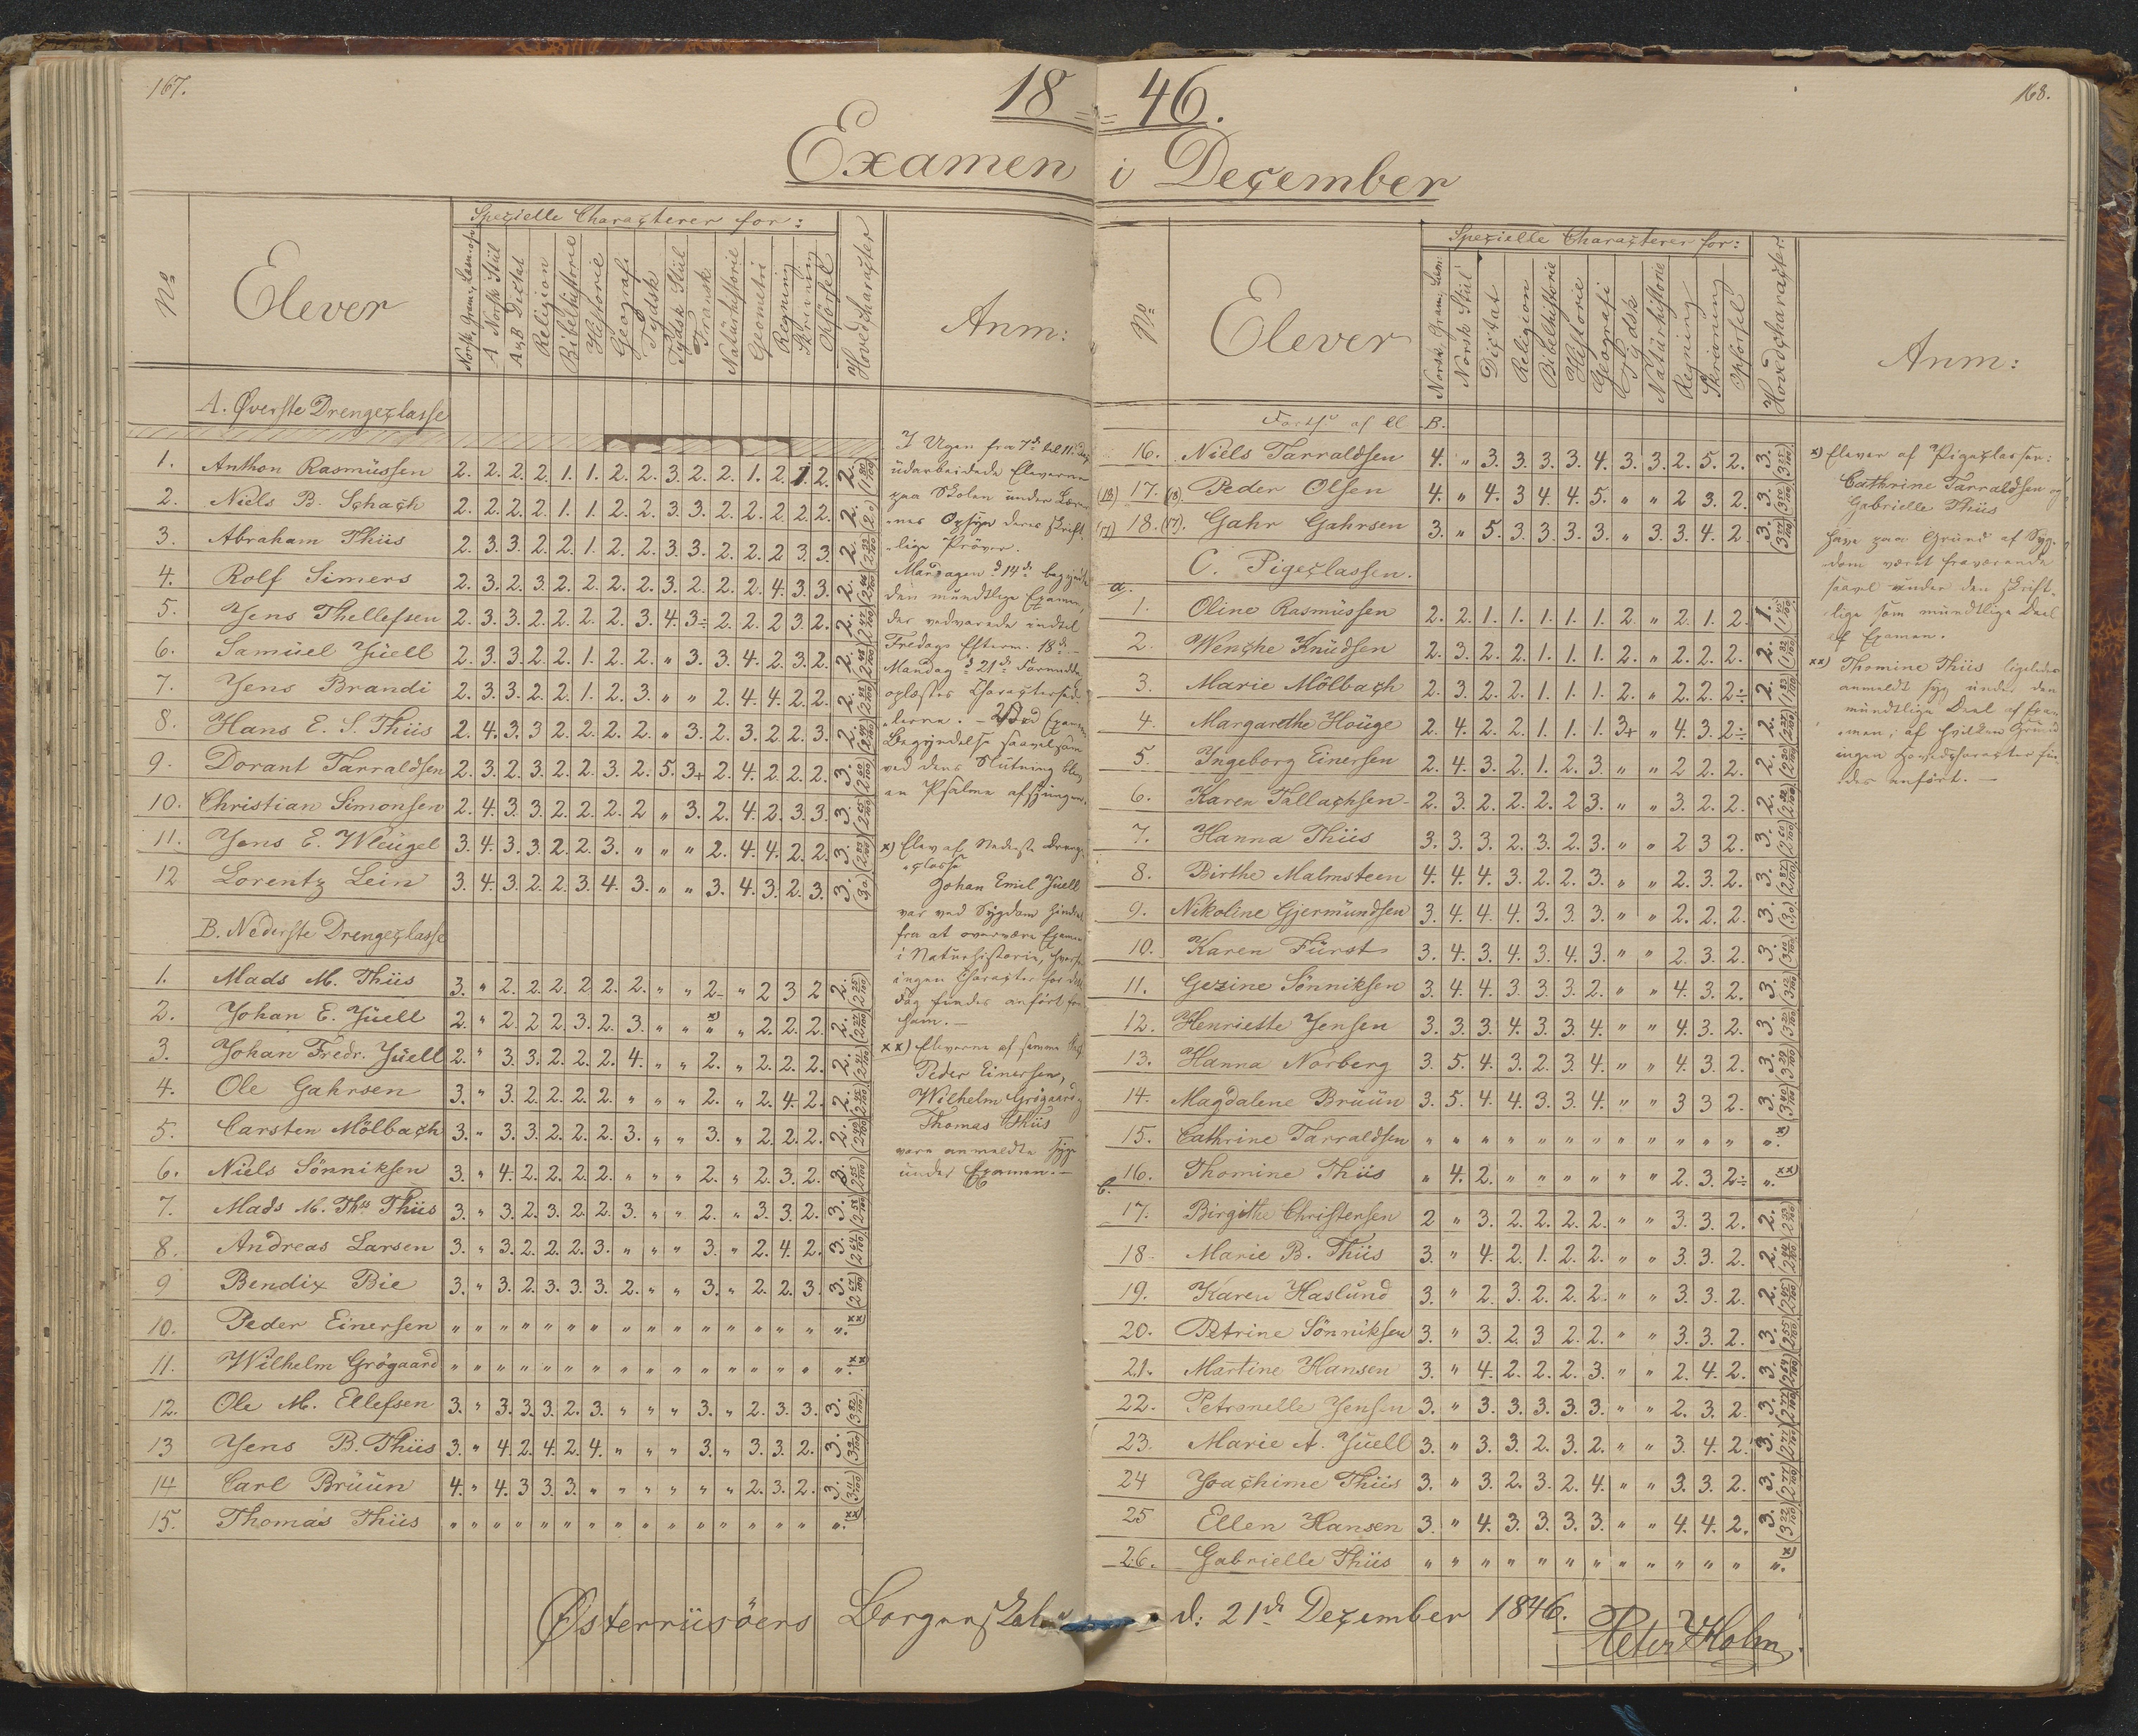 167.
18=
Examen
Nº
Elever
Speçielle Charaçterer for:
Norsk, Gram., Læsn.
A Norsk Stül
A & B Dictat
Religion
Bibelhistorie
Historie
Geografi
Tydsk
Tydsk Stül
Fransk
Natürhistorie
Geometri
Regning
Skrivning
Opförsel
Hovedçharaçter
Anm:
A. Øverste Drengeçlasse
1. Anthon Rasmüssen 2. 2. 2. 2. 1. 1. 2. 2. 3. 2. 2. 1. 2. 1. 2. 2. (1 80/100)
2. Niels B. Schaçh 2. 2. 2. 2. 1. 1. 2. 2. 3. 3. 2. 2. 2. 2. 2. 2. (2.0)
3. Abraham Thiis 2. 3. 3. 2. 2. 1. 2. 2. 3. 3. 2. 2. 2. 3. 3. 2.
4. Rolf Simers 2. 3. 2. 3. 2. 2. 2. 2. 3. 2. 2. 2. 4. 3. 3. 2.
5. Jens Thellefsen 2. 3. 3. 2. 2. 2. 2. 3. 4. 3÷ 2. 2. 2. 3. 2. 2.
6. Samüel Jüell 2. 3. 3. 2. 2. 1. 2. 2. " 3. 3. 4. 2. 3. 2. 2.
7. Jens Brandi 2. 3. 3. 2. 2. 1. 2. 3. " " 2. 4. 4. 2. 2. 2.
8. Hans E. S. Thiis 2. 4. 3. 3 2. 2. 2. 2. " 3. 2. 3. 2. 2. 3. 2.
9. Dorant Tarraldsen 2. 3. 2. 3. 2. 2. 3. 2. 5. 3+ 2. 4. 2. 2. 2. 3.
10. Christian Simonsen 2. 4. 3. 3. 2. 2. 2. 2 " 3. 2. 4. 2. 3. 3. 3.
11. Jens E. Wleügel 3. 4. 3. 3. 2. 2. 3. " " " 2. 4. 4. 2. 2. 3.
12 Lorentz Lein 3. 4. 3. 2. 2. 3. 4. 3. " " 3. 4. 3. 2. 3. 3. (3.0)
B. Nederste Drengeçlasse
1. Mads M. Thiis 3. " 2. 2. 2. 2 2. 2. " " 2. " 2 3 2 2.
2. Johan E. Jüell 2. " 2. 2 2. 3. 2. 3. " " "x) " 2. 2. 2. 2.
3. Johan Fredr. Jüell 2. " 3. 3. 2. 2. 2. 4. " " 2. " 2. 2. 2. 2.
4. Ole Gahrsen 3. " 3. 2. 2. 2. 2. " " " 2. " 2. 4. 2. 2.
5. Carsten Mölbaçh 3. " 3. 3. 2. 2. 2. 3. " " 3. " 2. 2. 2. 2.
6. Niels Sönniksen 3. " 4. 2. 2. 2. 2. " " " 2. " 2. 3. 2. 3.
7. Mads M. Ths Thiis 3. " 3. 2. 3. 2. 2. 3. " " 2. " 3. 3. 2. 3.
8. Andreas Larsen 3. " 3. 2. 2. 2. 3. " " " 3. " 2. 4. 2. 3.
9 Bendix Bie 3. " 3. 2. 3. 3. 3. 2. " " 3. " 2. 2. 3. 3.
10. Peder Einersen " " " " " " " " " " " " " " " ". xx)
11. Wilhelm Grögaard " " " " " " " " " " " " " " " ". xx)
12. Ole M. Ellefsen 3. " 3. 3. 3. 2. 3. " " " 3. " 2. 3. 3. 3.
13 Jens B. Thiis 3. " 4. 2. 4. 2. 4. " " " 3. " 3. 3. 2. 3.
14 Carl Brüün 4. " 4. 3 3. 3. " " " " " " 2. 3. 2. 3.
15. Thomas Thiis " " " " " " " " " " " " " " " ". xx)
I Ugen fra 7de til 11te
üdarbeidede Eleverne
paa Skolen ünder Lære
nes Opsyn deres skrift
lige Pröver.
Mandagen d 14de begyndte
den mündtlige Examen,
der vedvarede indtil
Fredags Efterm. 18de
Mandag d 21de Formidd.
oplæstes Charaçtersed
lerne. – Ved Examens
Begyndelse saavelsom
ved dens Slütning blev
en Psalme afsjüngen.
x) Elev af Nederste Drenge
çlasse
Johan Emil Jüell
var ved Sygdom hindret
fra at overvære Examen
i Natürhistorie, hvorfor
ingen Charaçter for dette
Fag findes anfört for
ham. –
xx) Eleverne af samme
Peder Einersen,
Wilhelm Grögaard
Thomas Thiis
vare anmeldte syge
under Examen. –
Østerriisöers Borgerskole
168.
=46.
i Deçember
Nº
Elever
Speçielle Charaçterer for:
Norsk. Gram., Læsn:
Norsk Stül
Diçtat
Religion
Bibelhistorie
Historie
Geografi
Tydsk
Natürhistorie
Regning
Skrivning
Opförsel
Hovedçharaçter.
Anm:
Forts: af B.
16. Niels Tarraldsen 4. " 3. 3. 3. 3. 4. 3. 3. 2. 5. 2. 3.
(18) 17. (18) Peder Olsen 4. " 4. 3 4. 4. 5. " " 2 3. 2. 3.
(17) 18. (17). Gahr Gahrsen 3. " 5. 3. 3. 3. 3. " 3. 3. 4. 2. 3.
C. Pigeçlassen.
a.
1. Oline Rasmüssen 2. 2. 1. 1. 1. 1. 1. 2. " 2. 1. 2. 1.
2. Wençhe Knüdsen 2. 3. 2. 2. 1. 1. 1. 2. " 2. 2. 2. 2.
3. Marie Mölbaçh 2. 3. 2. 2. 1. 1. 1. 2. " 2. 2. 2÷ 2.
4. Margarethe Hoüge 2. 4. 2. 2. 1. 1. 1. 3+ " 4. 3. 2÷ 2.
5. Ingeborg Einersen 2. 4. 3. 2. 1. 2. 3. " " 2 2. 2. 2.
6. Karen Tallaçhsen 2. 3. 2. 2. 2. 2 3. " " 3. 2. 2. 2.
7. Hanna Thiis 3. 3. 3. 2. 3. 2. 3. " " 2 3 2. 3.
8. Birthe Malmsteen 4. 4. 4. 3. 2. 2. 3. " " 2. 3. 2. 3.
9. Nikoline Gjermündsen 3. 4. 4. 4. 3. 3. 3. " " 2. 2. 2. 3. (3.0)
10. Karen Fürst 3. 4. 3. 4. 3. 4. 3. " " 2. 3. 2. 3.
11. Gezine Sönniksen 3. 4. 4. 3. 3. 3. 2. " " 4. 3. 2. 3.
12. Henriette Jensen 3. 3. 3. 4. 3. 3. 4. " " 4. 3. 2. 3.
13. Hanna Norberg 3. 5. 4. 3. 2. 3. 4. " " 4. 3. 2. 3.
14. Magdalene Brüün 3. 5. 4. 4. 3. 3. 4. " " 3 3 2. 3.
15. Cathrine Tarraldsen " " " " " " " " " " " " ". x)
16. Thomine Thiis " 4. 2. " " " " " " 2. 3. 2÷ ". xx)
b.
17. Birgithe Christensen 2 " 3. 2. 2. 2. 2. " " 3. 3. 2. 2.
18. Marie B. Thiis 3. " 4. 2. 1. 2. 2. " " 3. 3. 2. 2.
19. Karen Haslünd 3. " 2. 3. 2. 2. 2. " " 3. 3. 2. 2.
20. Petrine Sönniksen 3. " 3. 2. 3 2. 2. " " 3. 3. 2. 3.
21. Martine Hansen 3. " 4. 2. 2. 2. 3. " " 2. 4. 2. 3.
22. Petronelle Jensen 3. " 3. 3. 3. 3. 3. " " 2. 3. 2. 3.
23. Marie A. Jüell 3. " 3. 3. 2. 3. 2. " " 3. 4. 2. 3.
24 Joaçhime Thiis 3. " 3. 2. 3. 2. 4. " " 3. 3. 2. 3.
25 Ellen Hansen 3. " 4. 3. 3. 3. 3. " " 4. 4. 2. 3.
26. Gabrielle Thiis " " " " " " " " " " " " ". x)
x) Elever af Pigeçlassen:
Cathrine Tarraldsen og
Gabrielle Thiis
have paa Gründ af Syg-
dom været fraværende
saavel ünder den skrift-
lige som mündtlige Deel
af Examen.
xx) Thomine Thiis ligeledes
anmeldt syg ünder den
mündtlige Deel af Exa-
men; af hvilken Gründ
ingen Hovedçharaçter fin-
des anfört. –
d: 21de Deçember 1846.
Peter Holm.